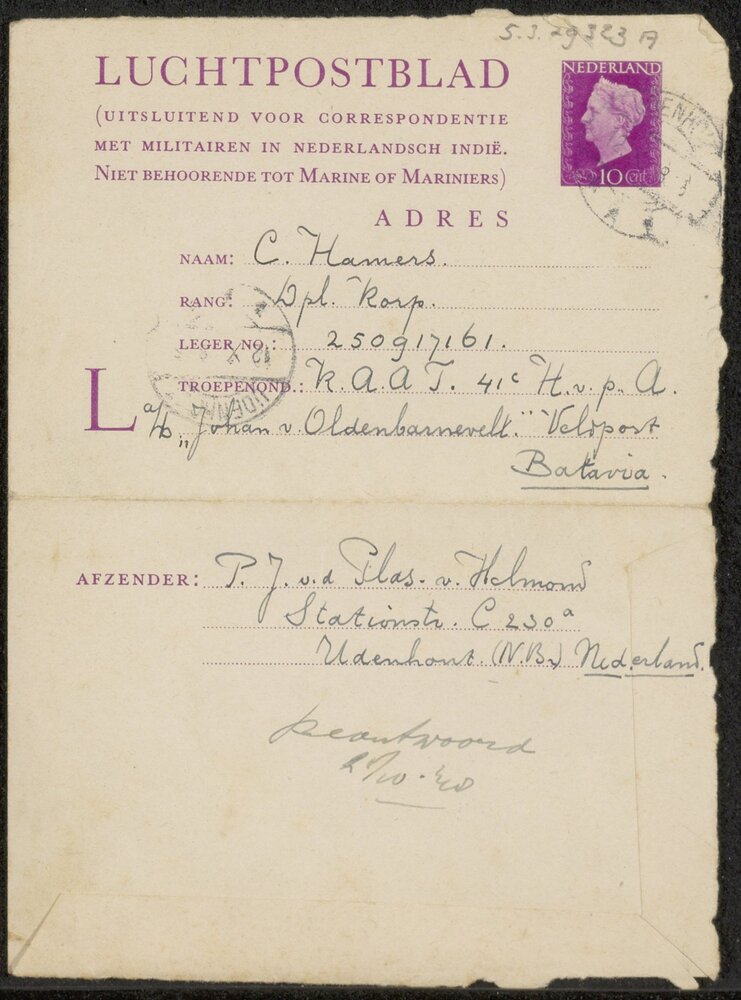 5.3.29323 A
LUCHTPOSTBLAD
(UITSLUITEND VOOR CORRESPONDENTIE
MET MILITAIREN IN NEDERLANDSCH INDIË.
NIET BEHOORENDE TOT MARINE OF MARINIERS)
NEDERLAND
10 Cent
ADRES
NAAM: C. Hamers.
RANG: Dpl. Korp.
LEGER NO.: 250917161.
TROEPENOND.: K.A.A.T. 41c H.v.p.A.
L
a/b „Johan v. Oldenbarnevelt." Veldpost
Batavia.
AFZENDER: P. J. v.d Plas-v. Helmond
Stationstr. C 230a
Udenhout. (N.Br.) Nederland.
beantwoord